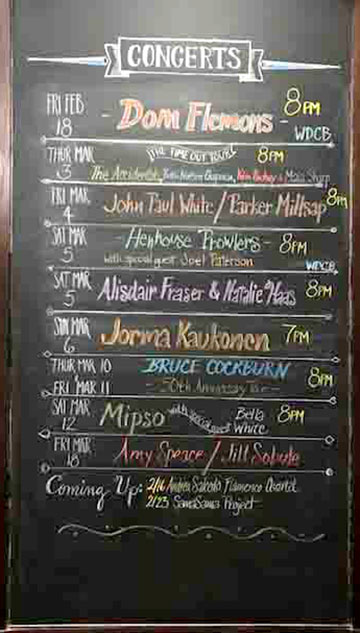 CONCERTS
FRI FEB 18 - Dom Flemons - 8PM
WDCB
THUR MAR 3 THE TIME OUT TOUR 8PM
The Accidentals, Kim Richey & Maia Sharp
FRI MAR 4 John Paul White / Parker Millsap 8PM
SAT MAR 5 - Henhouse Prowlers - 8PM
with special guest Joel Paterson WDCB
SAT MAR 5 Alisdair Fraser & Natalie Haas 8PM
SUN MAR 6 Jorma Kaukonen 7PM
THUR MAR 10 BRUCE COCKBURN
FRI MAR 11 - 50th Anniversary Tour - 8PM
SAT MAR 12 Mipso with special guest Bella White 8PM
FRI MAR 18 Amy Speace / Jill Sobule
Coming Up: 2/16 Flamenco Quartet
2/23 Project